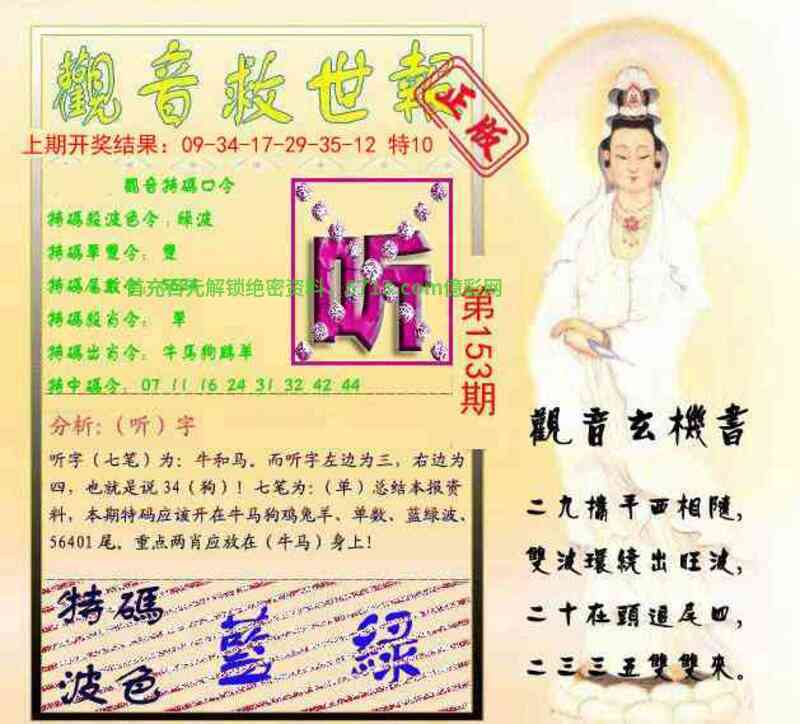 觀音救世報
正版
上期开奖结果：09-34-17-29-35-12 特10
觀音特碼口令
特碼殺波色令：綠波
特碼單雙令：雙
特碼尾數令：5624
首充百元解锁绝密资料
.com億彩网
特碼殺肖令： 單
特碼出肖令：牛马狗鷄羊
特中碼令：07 11 16 24 31 32 42 44
听
第153期
分析:（听）字
听字（七笔）为：牛和马。而听字左边为三，右边为
四，也就是说 34（狗）！七笔为：（单）总结本报资
料，本期特码应该开在牛马狗鸡兔羊、单数、蓝绿波、
56401 尾。重点两肖应放在（牛马）身上！
特碼
波色
藍 綠
觀音玄機書
二九攜平西相隨，
雙波環繞出旺波，
二十在頭過尾四，
二三三五雙雙來。